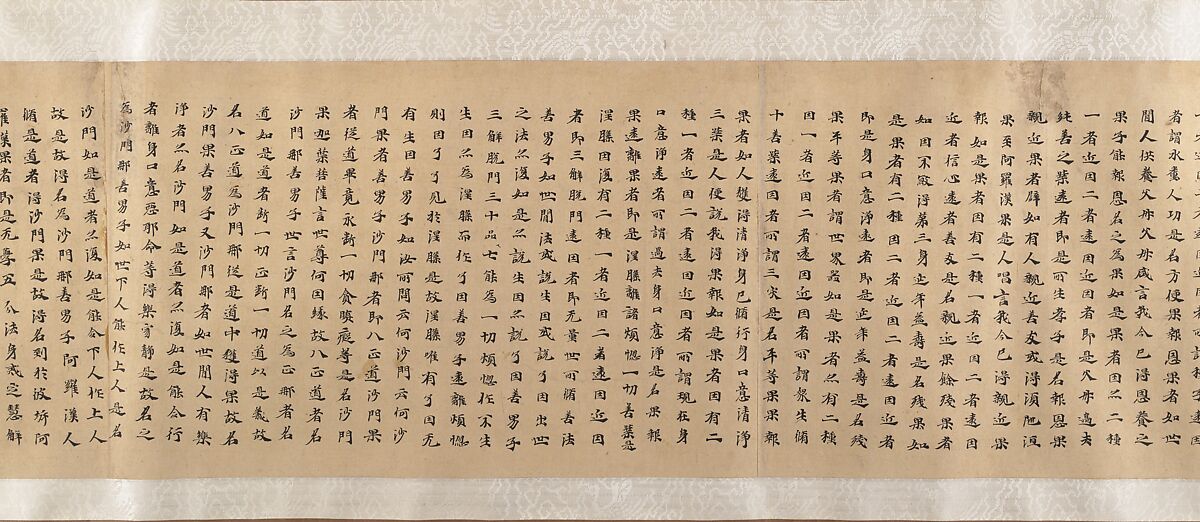 者謂水糞人功是名方便果報恩果者如世
間人供養父母父母咸言我今已得恩養之
果子能報恩名之為果如是果者因亦二種
一者近因二者遠因近因者即是父母過去
純善之業遠者即是可生孝子是名報恩果
親近果者辟如有人親近善友或得須陁洹
果至阿羅漢果是人唱言我今已得親近果
報如是果者因有二種一者近因二者遠因
近者信心遠者善友是名親近果餘殘果者
如因不煞得第三身延年益壽是名殘果如
是果者有二種因二者近因二者遠因近者
即是身口意淨遠者即是延年益壽是名殘
果平等果者謂世界器如是果者亦有二種
因一者近因二者遠因近因者所謂眾生脩
十善業遠因者所謂三灾是名平等果果報
果者如人獲得清淨身已脩行身口意清淨
三業是人便說我得果報如是果者因有二
種一者近因二者遠因近因者所謂現在身
口意淨遠者所謂過去身口意淨是名果報
果遠離果者即是涅槃離諸煩惱一切善業是
涅槃因復有二種一者近因二者遠因近因
者即三解脫門遠因者即无量世所脩善法
善男子如世間法或說生因或說了因出世
之法亦復如是亦說生因亦說了因善男子
三解脫門三十品七能為一切煩惱作不生
生因亦為涅槃而作了因善男子遠離煩惱
則因了了見於涅槃是故涅槃唯有了因无
有生因善男子如汝所問云何沙門云何沙
門果者善男子沙門那者即八正道沙門果
者從道畢竟永斷一切貪瞋癡等是名沙門
果迦葉菩薩言世尊何因緣故八正道者名
沙門那善男子世言沙門名之為乏那者名
道如是道者斷一切乏斷一切道以是義故
名八正道為沙門那從是道中獲得果故名
沙門果善男子又沙門那者如世間人有樂
淨者亦名沙門如是道者亦復如是能令行
者離身口意惡邪命等得樂寂靜是故名之
為沙門那善男子如世下人能作上人是名
沙門如是道者亦復如是能令下人作上人
故是故得名為沙門那善男子阿羅漢人
脩是道者得沙門果是故得名到於彼岸阿
羅漢果者即是无學五分法身戒定慧解